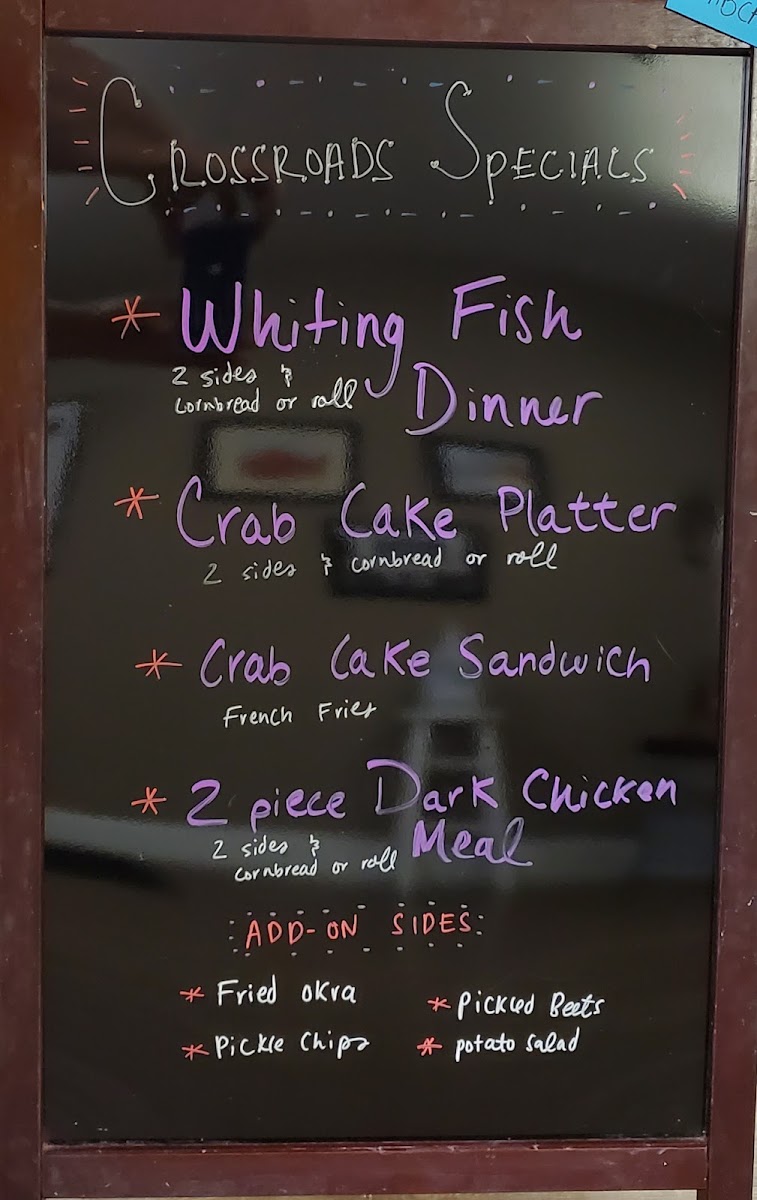 Crossroads Specials
* Whiting Fish
2 sides &
cornbread or roll Dinner
* Crab Cake Platter
2 sides & cornbread or roll
* Crab Cake Sandwich
French Fries
* 2 piece Dark Chicken
2 sides & Meal
cornbread or roll
ADD-ON SIDES
* Fried okra * Pickled Beets
* Pickle Chips * potato salad